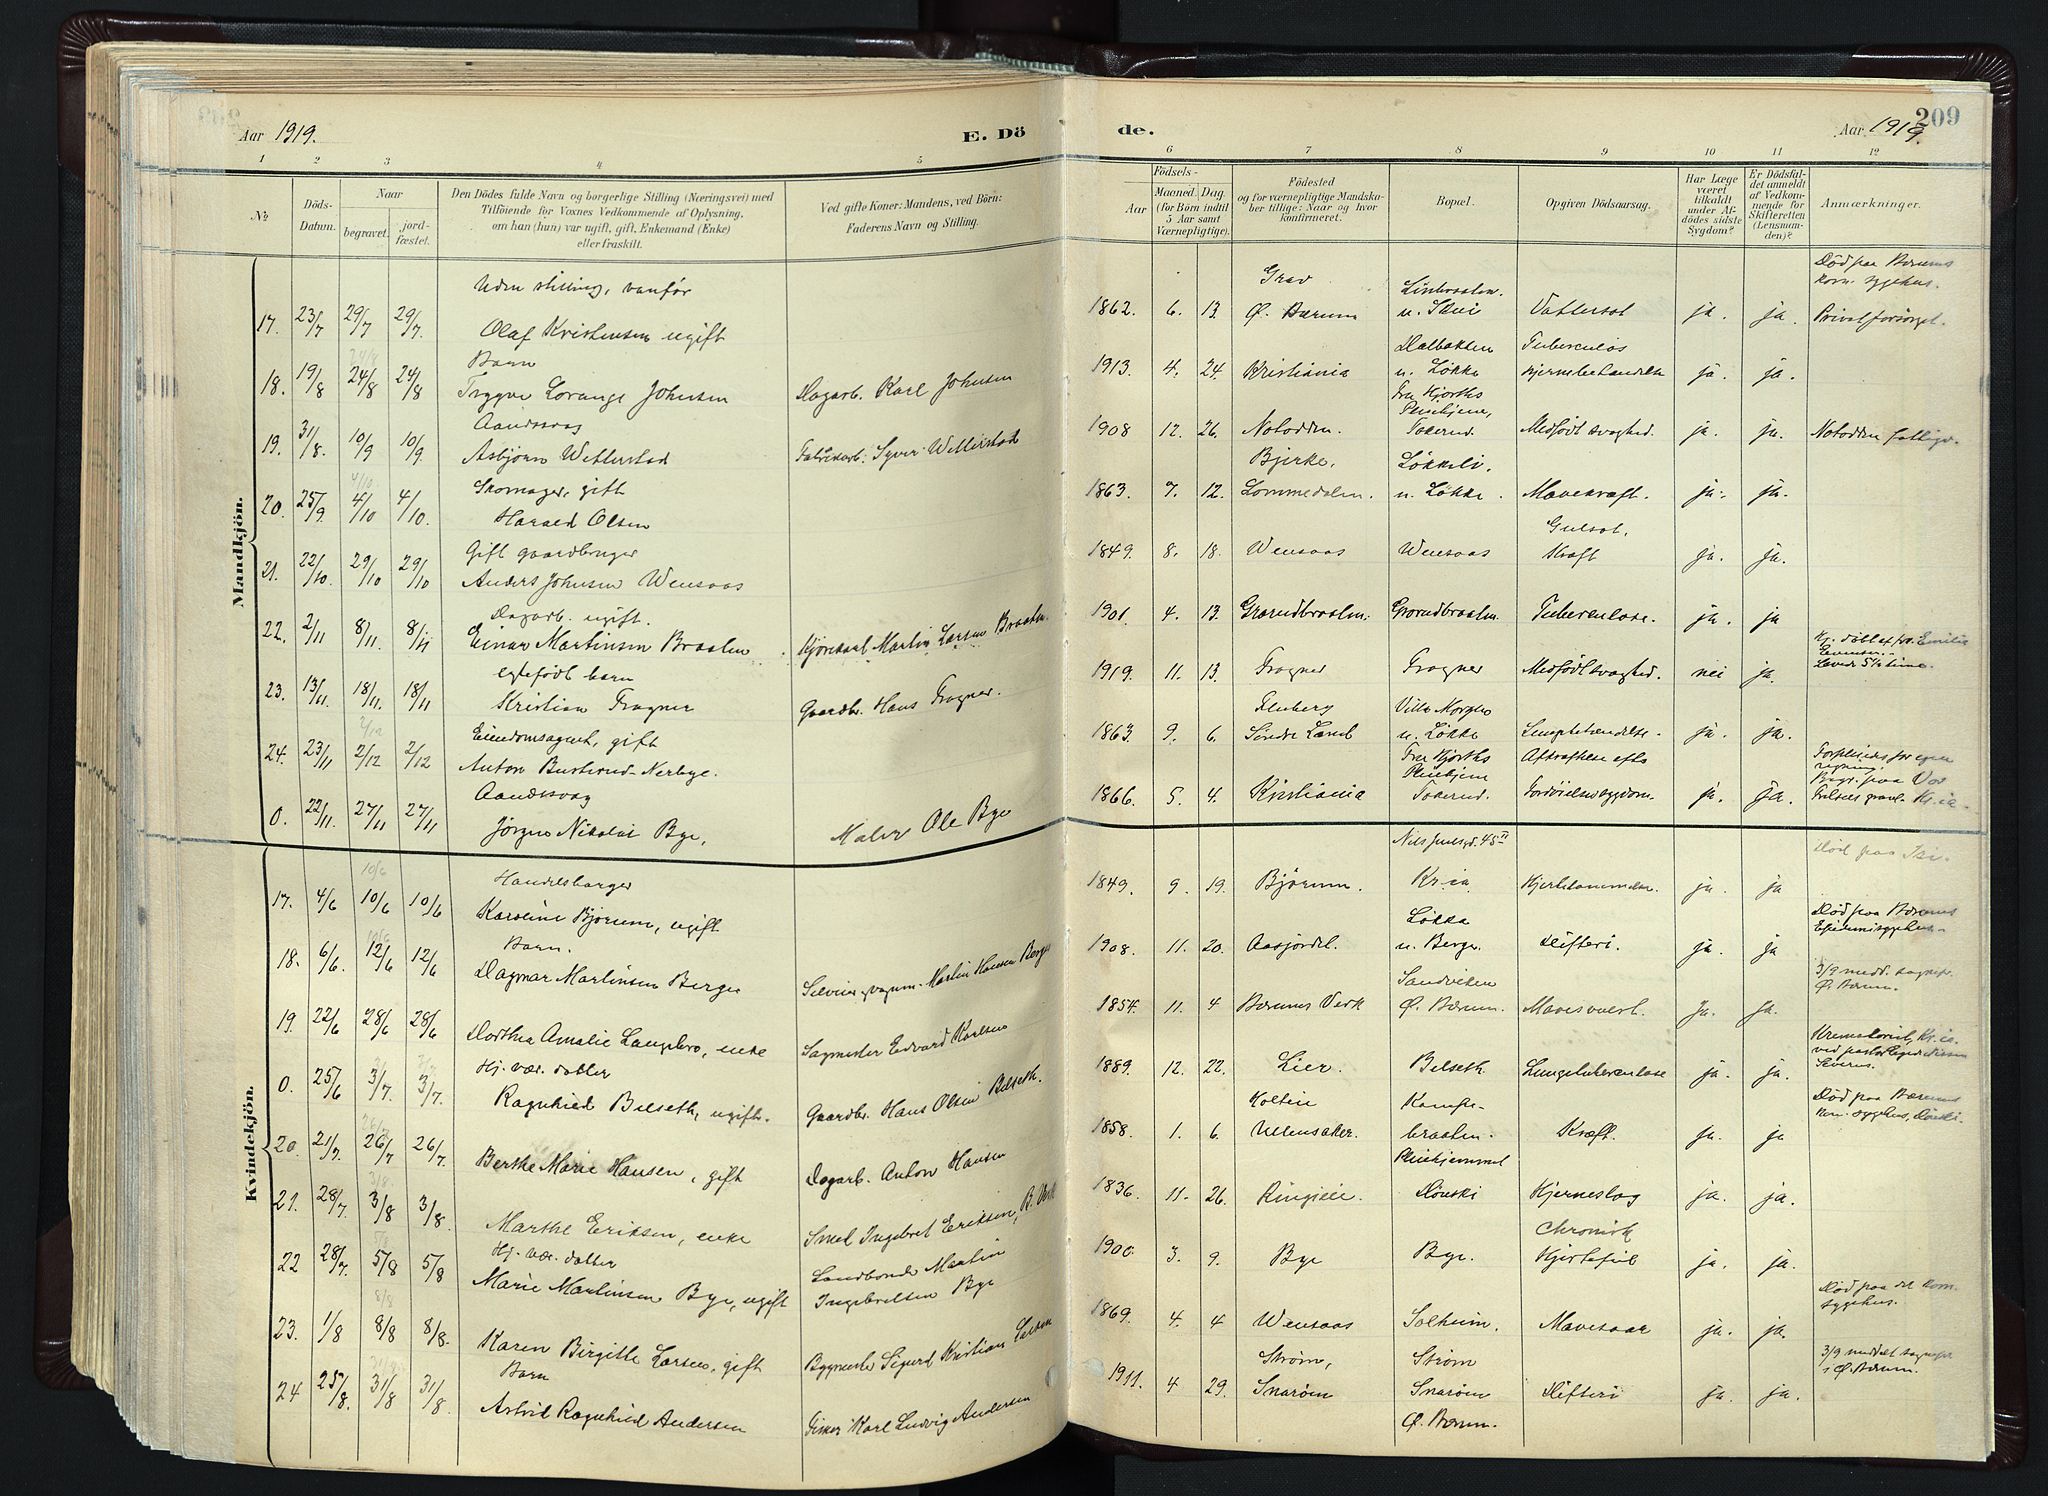 209
Aar 1919.
E. Dö
de.
Aar 1919.
1 2 3 4 5
6 7 8 9 10 11 12
№
Döds-Datum.
Naar
begravet.
jord-fæstet.
Den Dödes fulde Navn og borgerlige Stilling (Næringsvei) med
Tilföiende for Voxnes Vedkommende af Oplysning,
om han (hun) var ugift, gift, Enkemand (Enke)
eller fraskilt.
Ved gifte Koner: Mandens, ved Börn:
Faderens Navn og Stilling.
Födsels-
Aar
Maaned. Dag.
(for Börn indtil
5 Aar samt
Værnepligtige).
Födested
og for værnepligtige Mandska-
ber tillige: Naar og hvor
konfirmeret.
Bopæl.
Opgiven Dödsaarsag.
Har Læge
været
tilkaldt
under Af-
dödes sidste
Sygdom?
Er Dödsfal-
det anmeldt
af Vedkom-
mende for
Skifteretten
(Lensman-
den)?
Anmærkninger.
Mandkjön.
Uden stilling, vanför
17. 23/7 29/7 29/7. Olaf Kristensen ugift
1862. 6. 13. Grav Ö. Bærum u. Skui ja. ja.
Död paa Bærums kom. sygehus.
Privat forsörget.
Barn
18. 19/8 24/8 24/8 Trygve Lorange Johnsen
Dagarb. Karl Johnsen
1913. 4. 24. Kristiania Dalbakken u. Løkke Tuberculøs hjernebetændelse ja. ja.
Aandssvag
19. 31/8. 10/9 10/9. Asbjörn Wetterstad
Fabrikarb. Syver Wetterstad
1908 12. 26. Notodden. Fru Hjorths Pleiehjem, Tokerud. Medfödt svaghed. ja. ja. Notodden fattigv.
Skomager, gift
20. 25/9 4/10 4/10. Harald Olsen
1863. 7. 12. Bjerke, Lommedalen. Løkkeli, u. Løkke. Mavekræft. ja. ja.
Gift gaardbruger
21. 22/10. 29/10 29/10 Anders Johnsen Wensaas
1849. 8. 18. Wensaas Wensaas Gulsot, Kræft ja. ja.
Dagarb. ugift.
22. 2/11 8/11. 8/11 Einar Martinsen Braaten
Kjörekarl Martin Larsen Braaten.
1901. 4. 13. Grorudbraaten. Grorudbraaten. Tuberculose. ja. ja
egtefödt barn
23. 13/11. 18/11. 18/11 Kristian Fragner
Gaardbr. Hans Fragner.
1919. 11. 13. Fragner Fragner Medfödt svaghed. nei ja.
Hj. döbt af fru Emilie
Levede 5 1/2 time.
Eiendomsagent, gift
24. 23/11 2/12 2/12 Anton Busterud-Nerbye.
1863. 9. 6. Fluberg Söndre Land u. Løkke Lungebetændelse. ja. ja.
Aandssvag
0. 22/11. 27/11 27/11 Jörgen Nikolai Bye,
Maler Ole Bye
1866. 5. 4. Kristiania Fru Hjorths Pleiehjem Tokerud. Afkræftelse efter ja. ja.
Begr. paa Vor Frelsers gravl. Kr.ia.
Kvindekjön.
Handelsborger
17. 4/6 10/6 10/6 Karoline Bjorum, ugift
1849. 9. 19. Bjorum. Kr.ia. ja. ja
Barn.
18. 6/6. 12/6 12/6 Dagmar Martinsen Berger
Martin Hansen Berger
1908. 11. 20. Løkka u. Berger. Difteri. ja. ja
Död paa Bærums Epidemisygehus.
19. 22/6 28/6 28/6 Dorthea Amalie Langebro, enke
Sagmester Edvard Karlsen
1854. 11. 4 Bærums Verk Sandviken Ö. Bærum. Mavesaar. Ja. Ja.
3/9 medd. sognepr. Ö. Bærum.
Hj. vær. datter
0. 25/6 3/7 3/7. Ragnhild Belseth, ugift.
Gaardbr. Hans Olsen Belseth.
1889. 12. 22. Lier. Belseth. Lungetuberculose ja. ja.
Krematoriet, Kr.ia.
20. 21/7. 26/7 26/7. Berthe Marie Hansen, gift
Dagarb. Anton Hansen
1858. 1. 6. Ullensaker. Kampe-braaten. Kræft. ja. ja
Död paa Bærums kom. sygehus, Dönski.
21. 28/7. 3/8 3/8. Marthe Eriksen, enke
Smed Ingebret Eriksen, B. Verk
1836. 11. 26. Ringerike. Pleiehjemmet Dönski Hjerneslag ja. ja.
Hj. vær. datter
22 28/7. 5/8 5/8 Marie Martinsen Bye, ugift
Landbonde Martin Ingebretsen Bye
1900. 3. 9. Bye Bye. Chronisk Hjertefeil ja. ja.
23. 1/8 8/8 8/8. Karen Birgitte Larsen, gift
Bygmester Sigurd Kristian Larsen
1869. 4. 4 Wensaas Solheim. Mavesaar ja. ja.
Död paa det kom. sygehus.
Barn
24 25/8. 31/8 31/8. Astrid Ragnhild Andersen
Fisker Karl Ludvig Andersen
1911. 4 29. Ström, Snaröen Ström Snaröen Ö. Bærum. Difteri ja. ja.
3/9 meddelt sognepr. i Ö. Bærum.